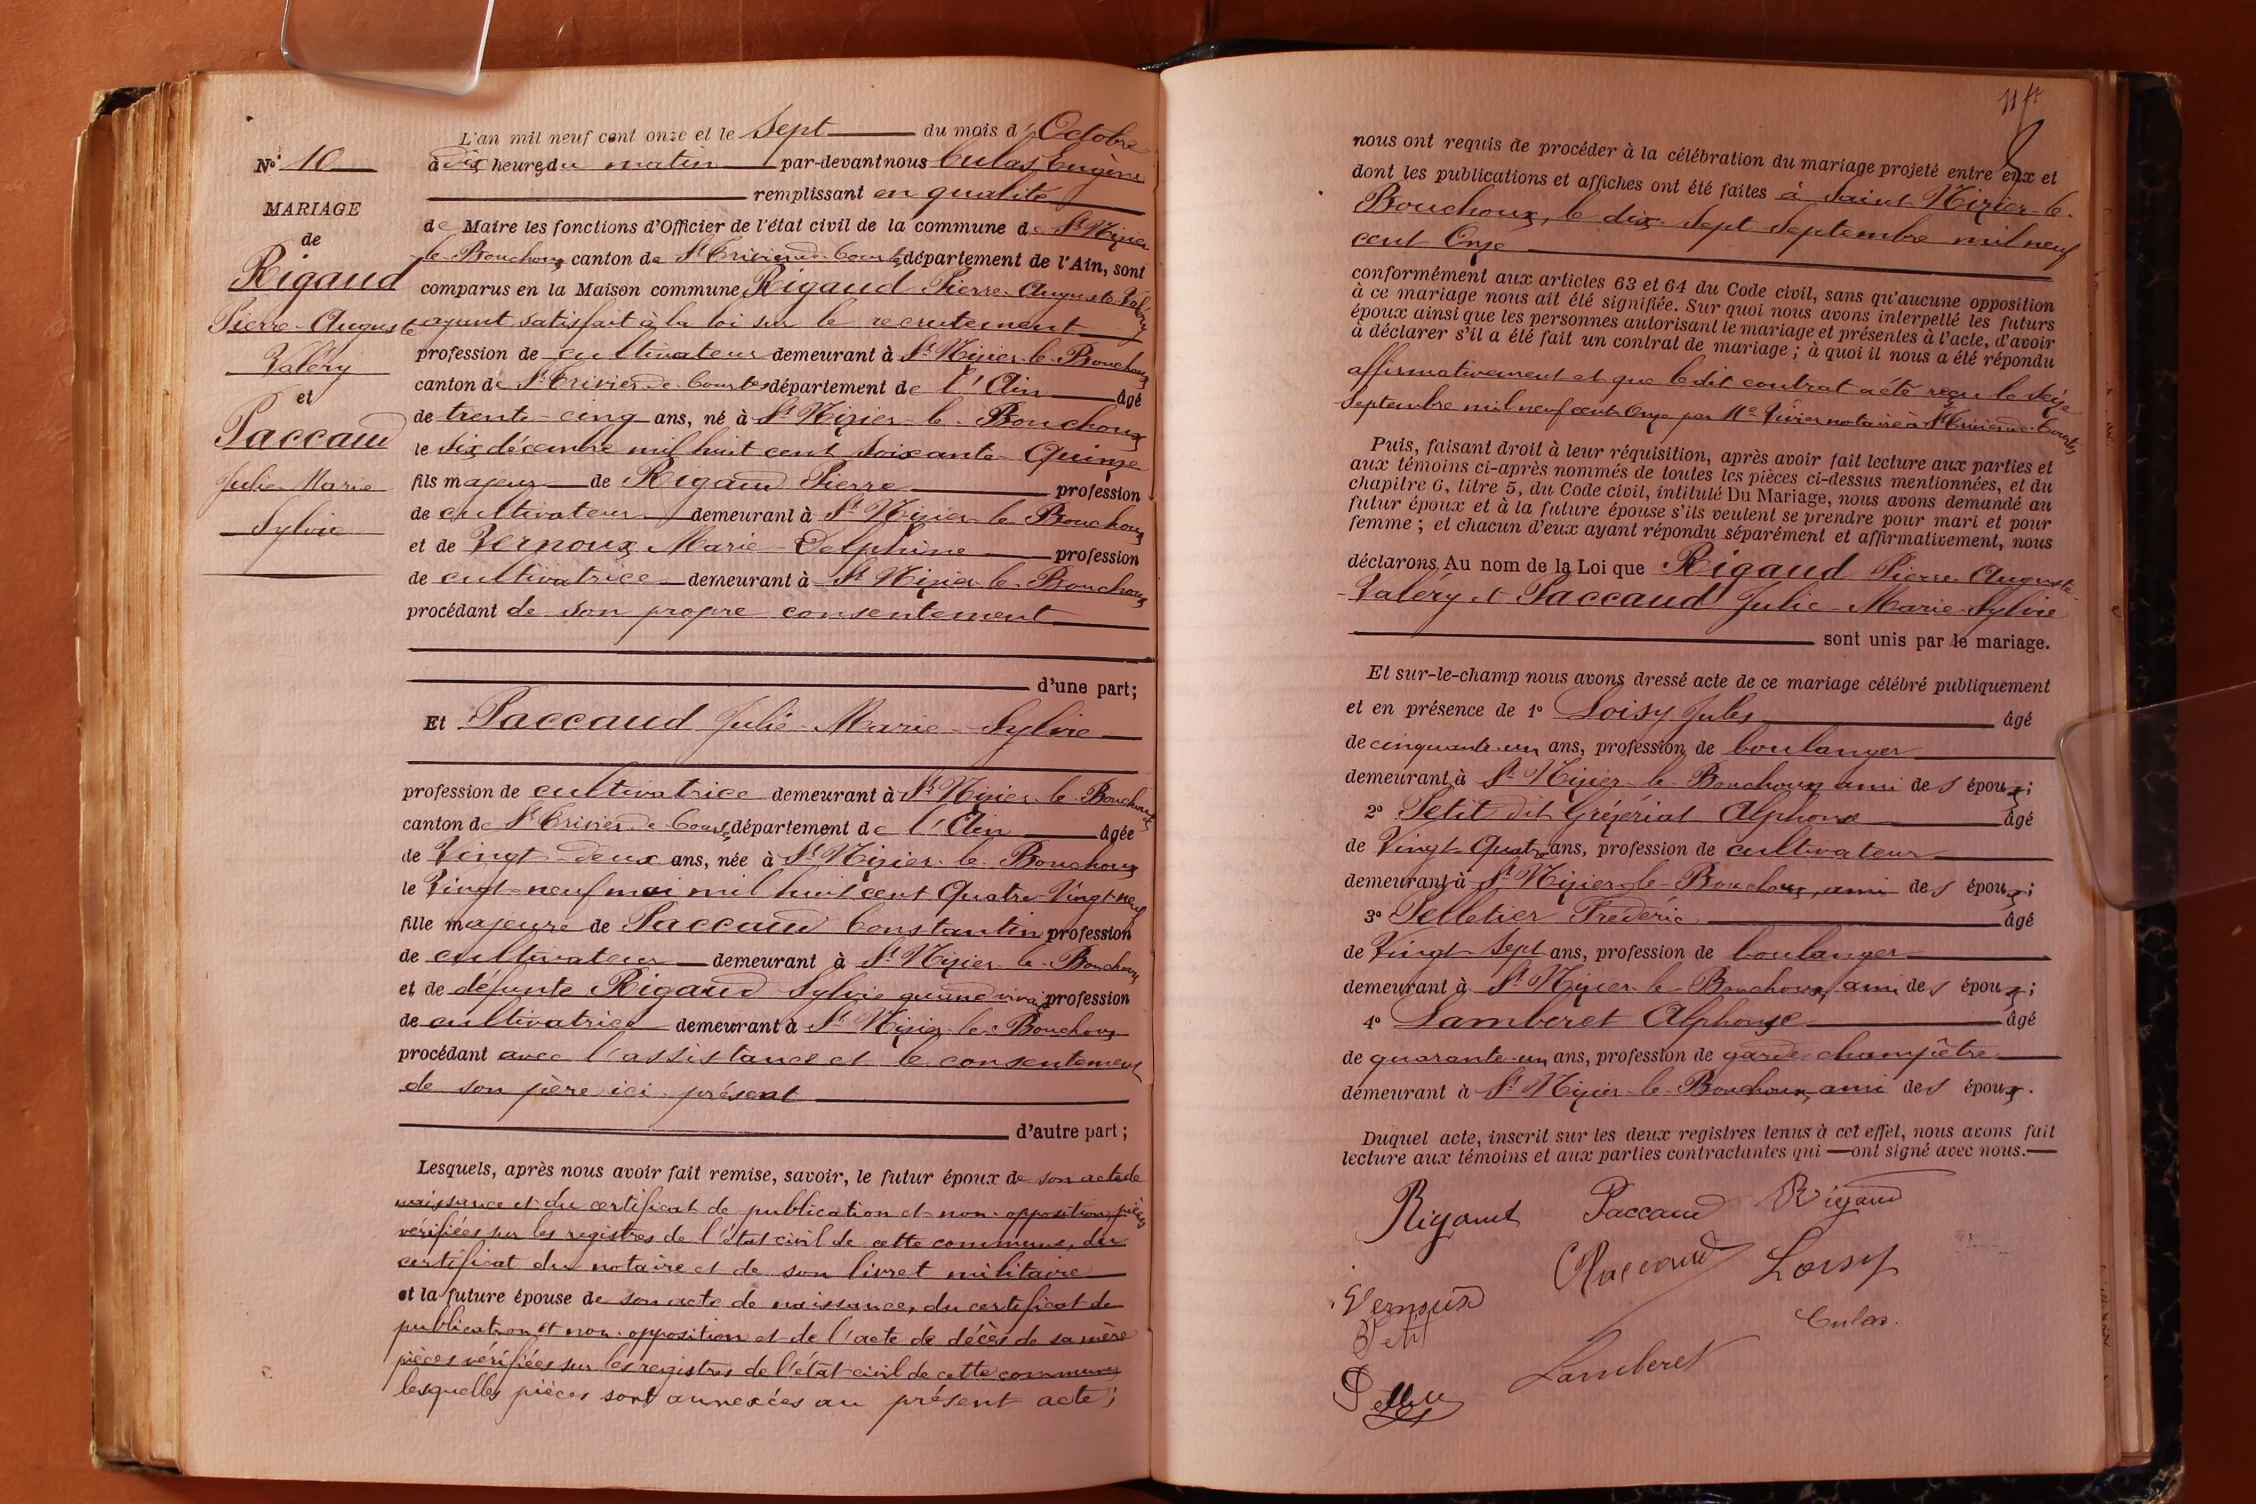 N° 10
MARIAGE
de
Rigaud
Pierre-Auguste
Valéry
et
Paccaud
Julie Marie
Sylvie
L'an mil neuf cent onze et le Sept du mois d'Octobre
à dix heures du matin par-devant nous Culas, Eugène
remplissant en qualité
de Maire les fonctions d'Officier de l'état civil de la commune de St Nizier
le Bouchoux canton de St Trivier de Courtes département de l'Ain, sont
comparus en la Maison commune, Rigaud Pierre-Auguste-Valéry
ayant satisfait à la loi sur le recrutement
profession de cultivateur demeurant à St Nizier-le-Bouchoux
canton de St Trivier de Courtes département de l'Ain âgé
de trente-cinq ans, né à St Nizier-le-Bouchoux
le Six décembre mil huit cent soixante-Quinze
fils majeur de Rigaud Pierre profession
de cultivateur demeurant à St Nizier-le-Bouchoux
et de Vernoux Marie-Delphine profession
de cultivatrice demeurant à St Nizier-le-Bouchoux
procédant de son propre consentement
d'une part;
Et Paccaud Julie-Marie-Sylvie
profession de cultivatrice demeurant à St Nizier-le-Bouchoux
canton de St Trivier de Courtes département de l'Ain âgée
de Vingt-deux ans, née à St Nizier-le-Bouchoux
le Vingt-neuf mai mil huit cent Quatre-Vingt-neuf
fille majeure de Paccaud Constantin profession
de cultivateur demeurant à St Nizier-le-Bouchoux
et de défunte Rigaud Sylvie quand vivait profession
de cultivatrice demeurant à St Nizier-le-Bouchoux
procédant avec l'assistance et le consentement
de son père ici présent
d'autre part;
Lesquels, après nous avoir fait remise, savoir, le futur époux de son acte de
naissance et du certificat de publication et non-opposition, pièces
vérifiées sur les registres de l'état civil de cette commune, du
certificat du notaire et de son livret militaire
et la future épouse de son acte de naissance, du certificat de
publication et non-opposition et de l'acte de décès de sa mère
pièces vérifiées sur les registres de l'état-civil de cette commune
lesquelles pièces sont annexées au présent acte;
11 ft
nous ont requis de procéder à la célébration du mariage projeté entre eux et
dont les publications et affiches ont été faites à Saint Nizier-le-
Bouchoux, le dix-sept Septembre mil neuf
cent Onze
conformément aux articles 63 et 64 du Code civil, sans qu'aucune opposition
à ce mariage nous ait été signifiée. Sur quoi nous avons interpellé les futurs
époux ainsi que les personnes autorisant le mariage et présentes à l'acte, d'avoir
à déclarer s'il a été fait un contrat de mariage; à quoi il nous a été répondu
affirmativement et que le dit contrat a été reçu le seize
Septembre mil neuf cent Onze par Me Vivier notaire à St Trivier de Courtes
Puis, faisant droit à leur réquisition, après avoir fait lecture aux parties et
aux témoins ci-après nommés de toutes les pièces ci-dessus mentionnées, et du
chapitre 6, titre 5, du Code civil, intitulé Du Mariage, nous avons demandé au
futur époux et à la future épouse s'ils veulent se prendre pour mari et pour
femme; et chacun d'eux ayant répondu séparément et affirmativement, nous
déclarons Au nom de la Loi que Rigaud Pierre Auguste-
-Valéry et Paccaud Julie-Marie-Sylvie
sont unis par le mariage.
Et sur-le-champ nous avons dressé acte de ce mariage célébré publiquement
et en présence de 1° Loisy Jules âgé
de cinquante-un ans, profession de boulanger
demeurant à St Nizier-le-Bouchoux ami des époux;
2° Petit dit Grégériat Alphonse âgé
de Vingt-Quatre ans, profession de cultivateur
demeurant à St Nizier-le-Bouchoux, ami des époux;
3° Pelletier Frédéric âgé
de Vingt-Sept ans, profession de boulanger
demeurant à St Nizier-le-Bouchoux, ami des époux;
4° Lamberet Alphonse âgé
de quarante-un ans, profession de garde-champêtre
demeurant à St Nizier-le-Bouchoux, ami des époux.
Duquel acte, inscrit sur les deux registres tenus à cet effet, nous avons fait
lecture aux témoins et aux parties contractantes qui ont signé avec nous.
Rigaud Paccaud Rigaud
Vernoux CPaccaud Loisy
Petit Culas.
Lamberet